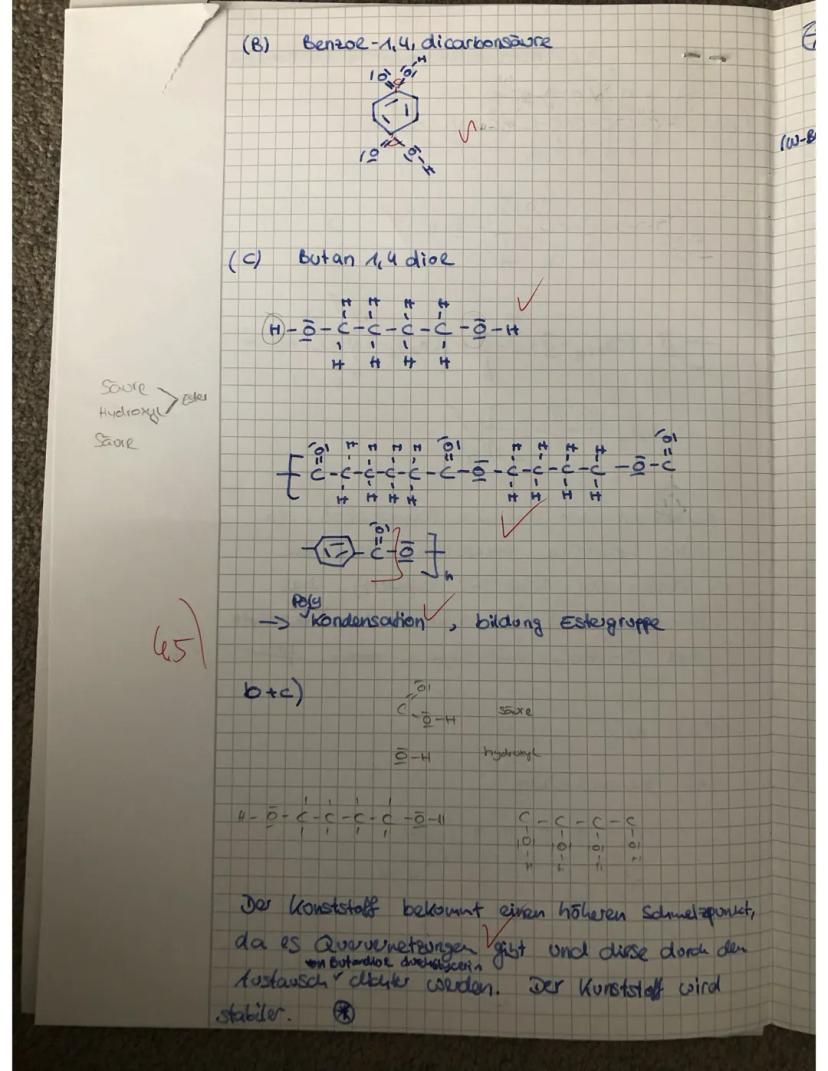 (B) Benzol-1,4, dicarbonsäure
(C) Butan 1,4 diol
H-O-C-C-C-C-O-H
Säure
Hydroxyl > Ester
Säure
C-C-C-C-C-C-O-C-C-C-C-O-C
C-O n
Poly
→ Kondensation, bildung Estergruppe
45)
b+c)
C O-H Säure
O-H hydroxyl
H-O-C-C-C-C-O-H C-C-C-C
Der Kunststoff bekommt einen höheren Schmelzpunkt,
da es Quervernetzungen gibt und diese durch den
von Butandiol durch Glycerin
Austausch dichter werden. Der Kunststoff wird
stabiler.